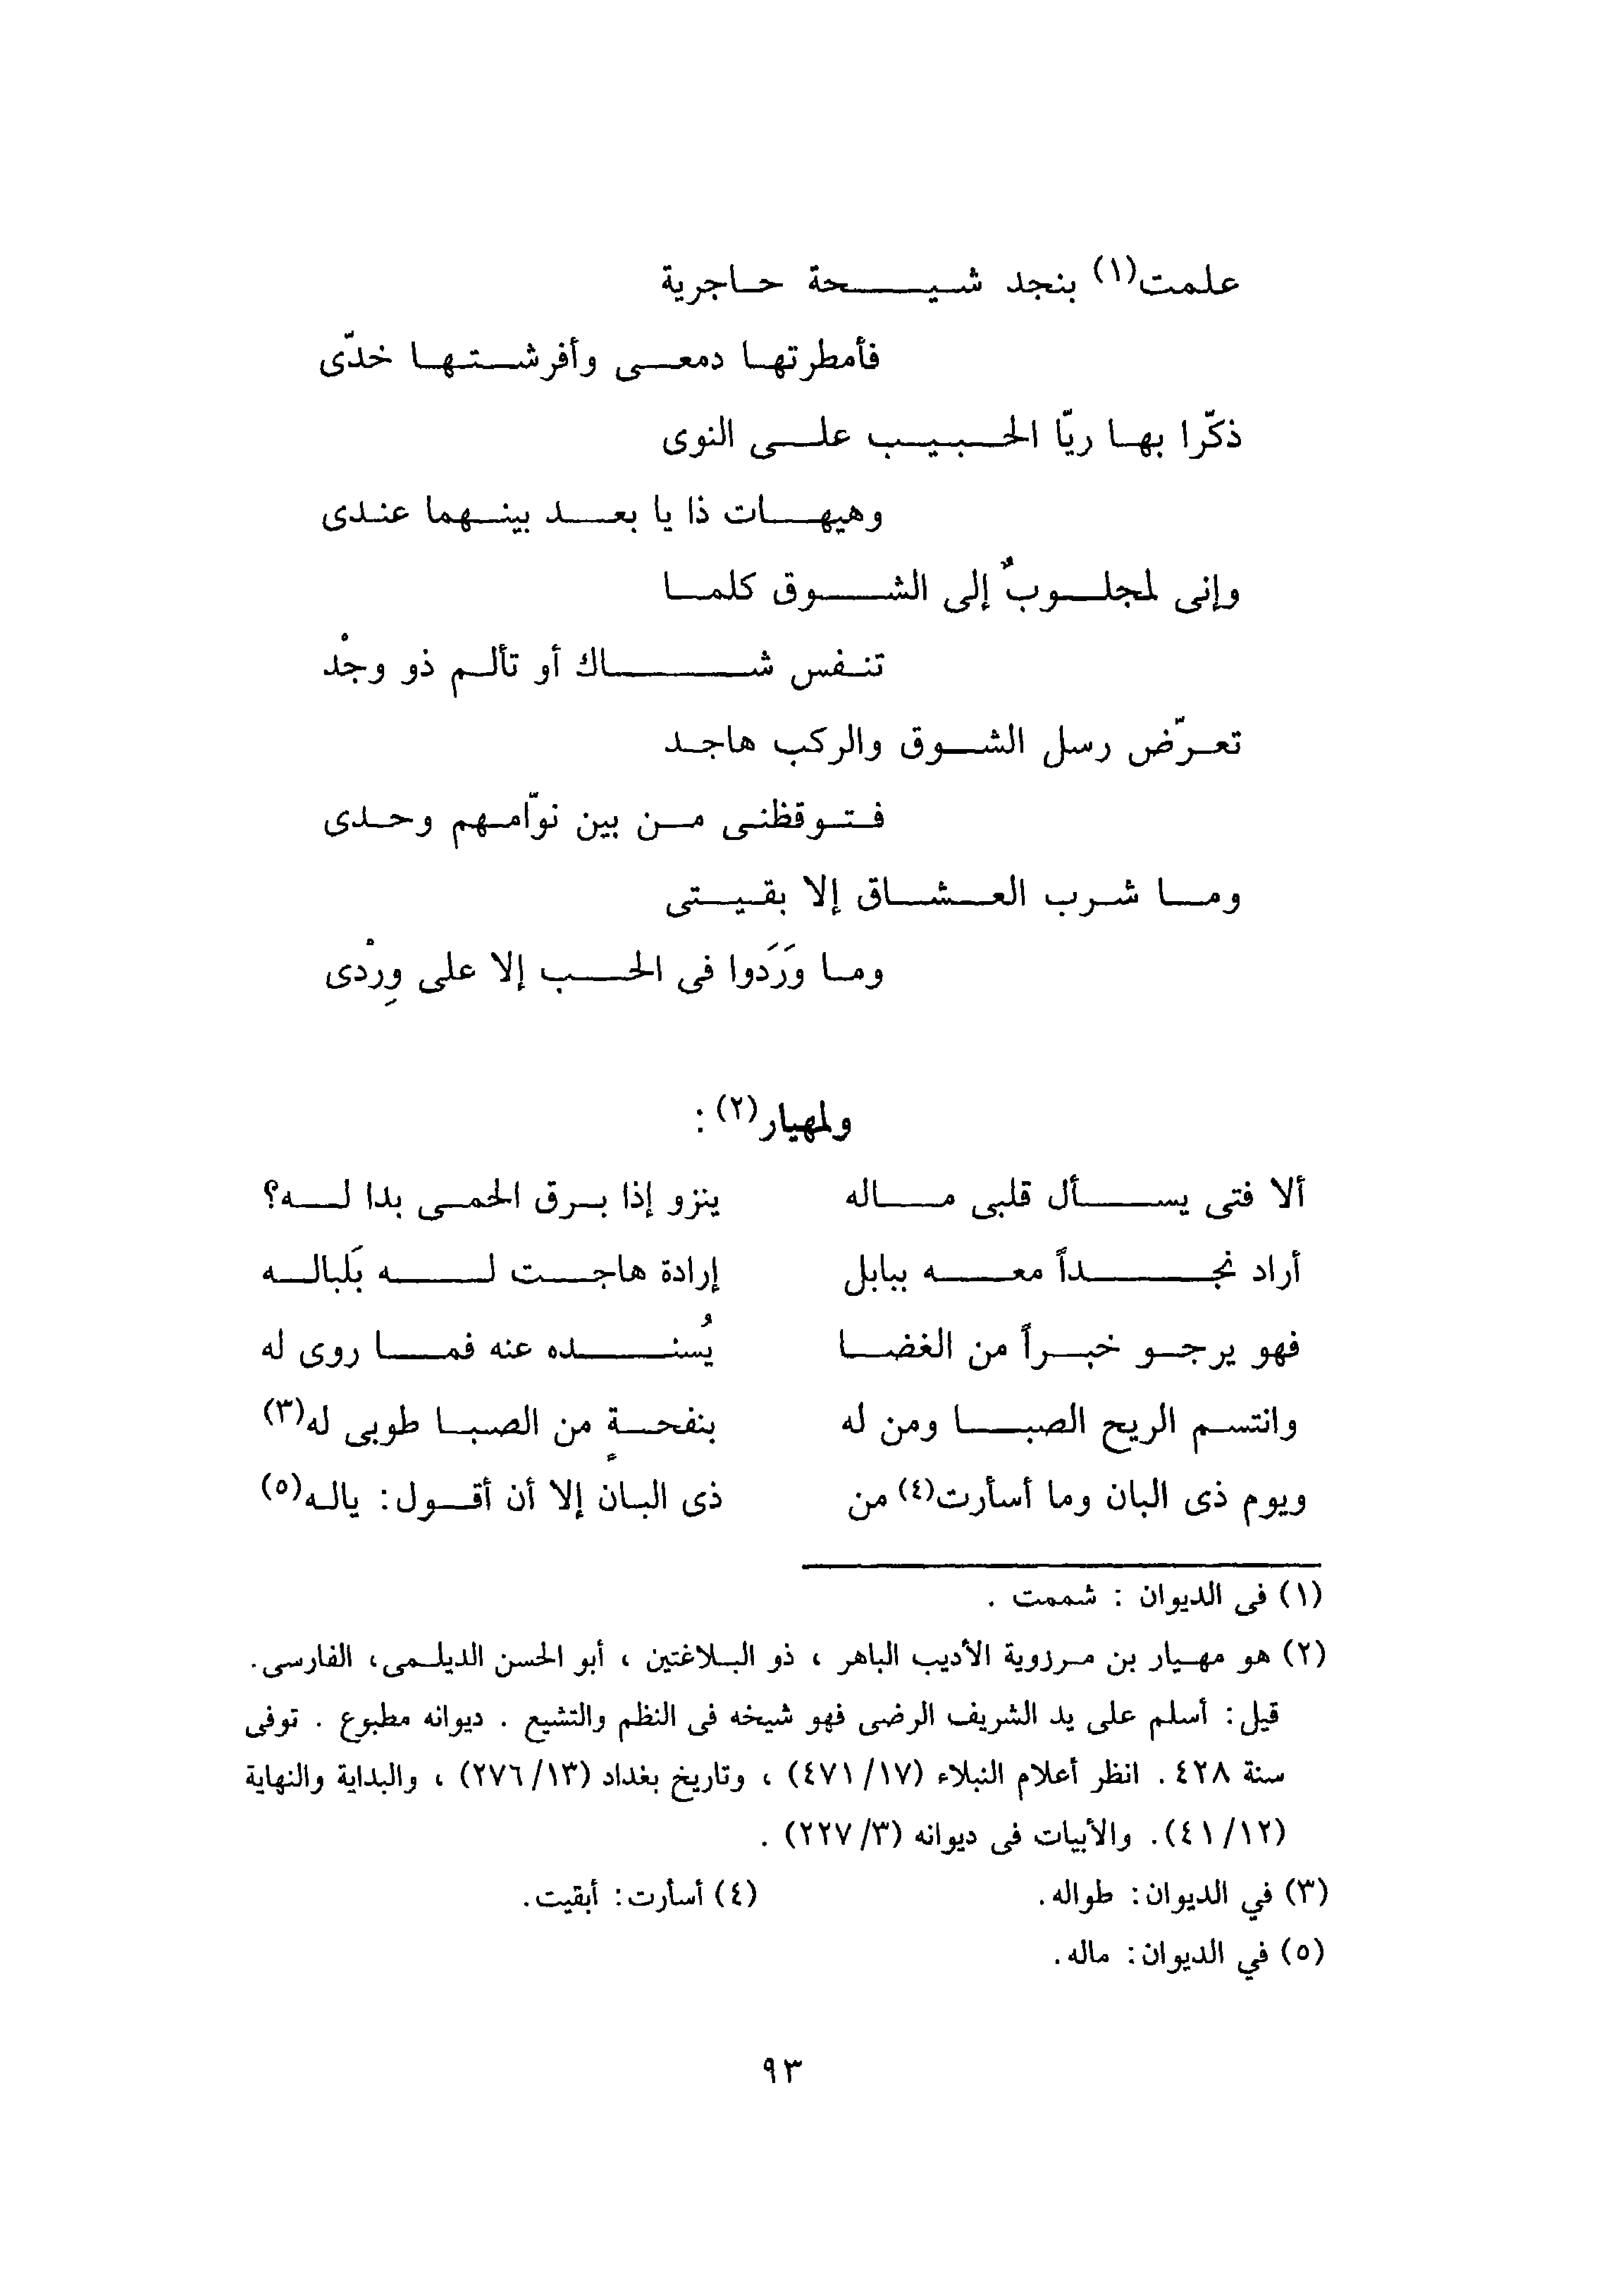 علمت(١) بنجد شيحة حاجرية
فأمطرتها دمعى وأفرشتها خدّى
ذكّرا بها ريّا الحبيب على النوى
وهيهات ذا يا بعد بينهما عندى
وإنى لمجلوبٌ إلى الشوق كلما
تنفس شاك أو تألم ذو وجْد
تعرّض رسل الشوق والركب هاجد
فتوقظنى من بين نوّامهم وحدى
وما شرب العشاق إلا بقيتى
وما وَرَدوا فى الحب إلا على وِرْدى
ولمهيار(٢) :
ألا فتى يسأل قلبى ماله ينزو إذا برق الحمى بدا له؟
أراد نجداً معه ببابل إرادة هاجت له بَلباله
فهو يرجو خبراً من الغضا يُسنده عنه فما روى له
وانتسم الريح الصبا ومن له بنفحةٍ من الصبا طوبى له(٣)
ويوم ذى البان وما أسأرت(٤) من ذى البان إلا أن أقول: ياله(٥)
(١) فى الديوان : شممت .
(٢) هو مهيار بن مرزوية الأديب الباهر ، ذو البلاغتين ، أبو الحسن الديلمى، الفارسى.
قيل: أسلم على يد الشريف الرضى فهو شيخه فى النظم والتشيع . ديوانه مطبوع . توفى
سنة ٤٢٨. انظر أعلام النبلاء (١٧/ ٤٧١) ، وتاريخ بغداد (١٣/ ٢٧٦) ، والبداية والنهاية
(١٢/ ٤١). والأبيات فى ديوانه (٣/ ٢٢٧) .
(٣) في الديوان: طواله. (٤) أسأرت: أبقيت.
(٥) في الديوان: ماله.
٩٣